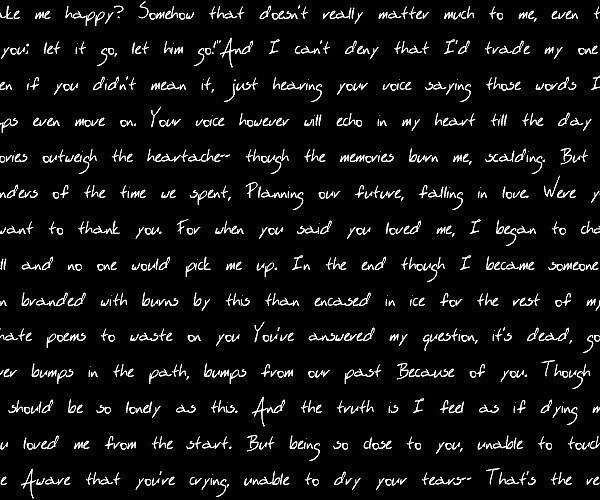 ke me happy? Somehow that doesn't really matter much to me, even
you; let it go, let him go!"And I can't deny that I'd trade my one
en if you didn't mean it, just hearing your voice saying those words I
ps even move on. Your voice however will echo in my heart till the day
ories outweigh the heartache~ though the memories burn me, scalding. But
nders of the time we spent, Planning our future, falling in love. Were y
want to thank you. For when you said you loved me, I began to cha
ll and no one would pick me up. In the end though I became someone
n branded with burns by this than encased in ice for the rest of my
hate poems to waste on you You've answered my question, it's dead, go
ver bumps in the path, bumps from our past Because of you. Though
should be so lonely as this. And the truth is I feel as if dying m
u loved me from the start. But being so close to you, unable to touch
e Aware that you're crying, unable to dry your tears~ That's the re